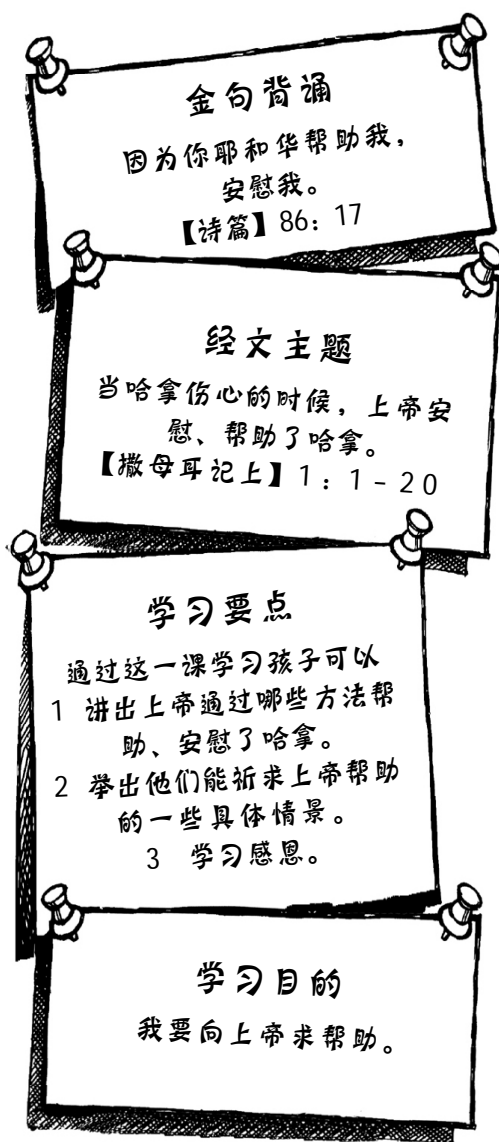 金句背诵
因为你耶和华帮助我，
安慰我。
【诗篇】86：17
经文主题
当哈拿伤心的时候，上帝安
慰、帮助了哈拿。
【撒母耳记上】1：1-20
学习要点
通过这一课学习孩子可以
1 讲出上帝通过哪些方法帮
助、安慰了哈拿。
2 举出他们能祈求上帝帮助
的一些具体情景。
3 学习感恩。
学习目的
我要向上帝求帮助。